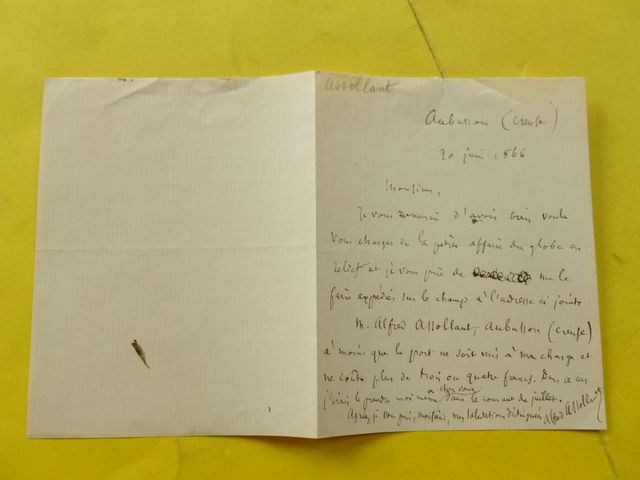 Assollant
Aubusson (Creuse)
20 juin 1866
Monsieur,
Je vous remercie d'avoir bien voulu
vous charger de la petite affaire du globe en
relief et je vous prie de me le
faire expédier sur le champ à l'adresse ci jointe
M. Alfred Assollant, Aubusson (Creuse)
à moins que le port ne soit mis à ma charge et
ne coûte plus de trois ou quatre francs. Dans ce cas
j'irai le prendre moi même chez vous dans le courant de juillet.
Agréez je vous prie, monsieur, mes salutations distinguées Alfred Assollant